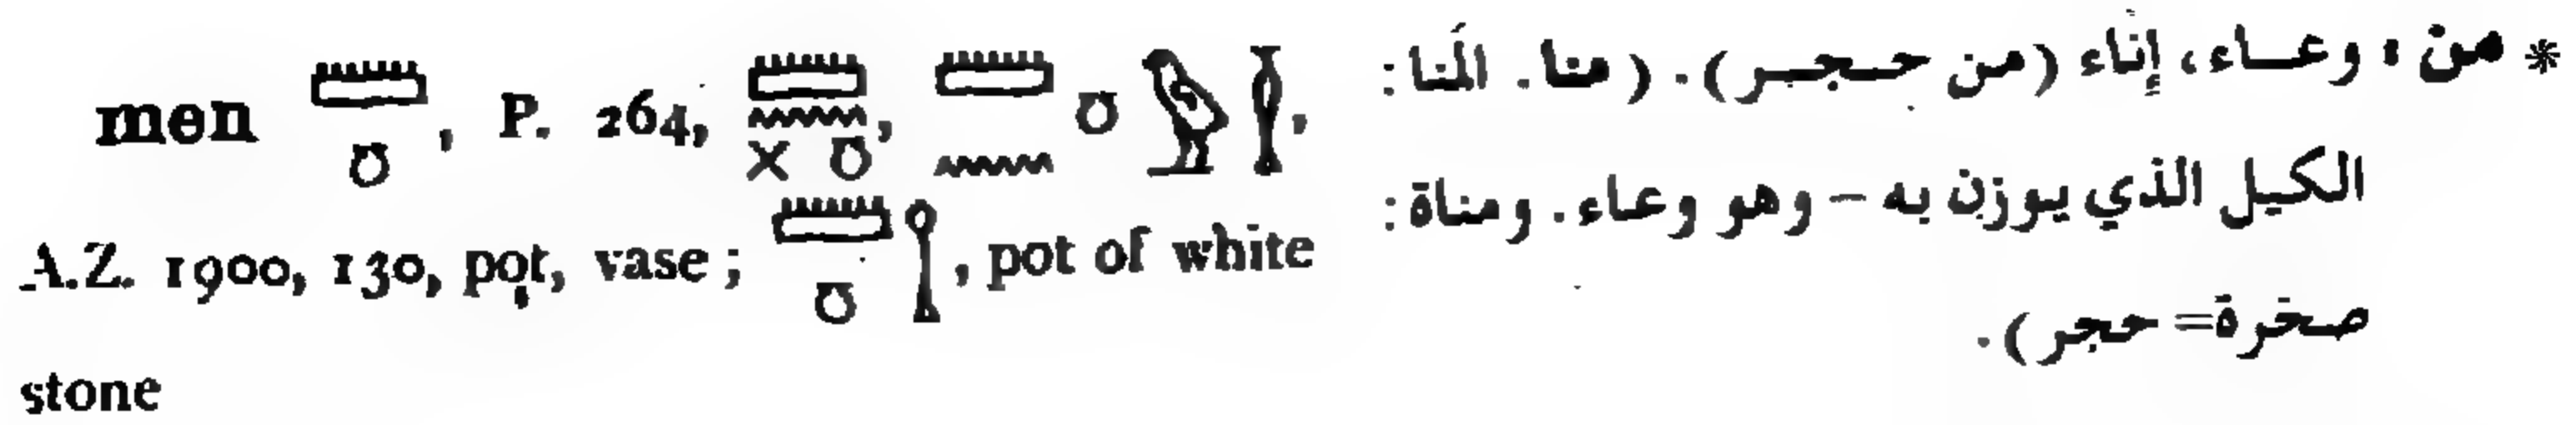 men 𓏠𓏌, P. 264, 𓏠𓈖𓏴𓏌, 𓏠𓈖𓏌𓅱𓋴,
A.Z. 1900, 130, pot, vase; 𓏠𓏌𓌉, pot of white
stone
* من ، وعاء، إناء (من حجر). (منا. المَنا:
الكيل الذي يوزن به – وهو وعاء. ومناة:
صخرة= حجر).